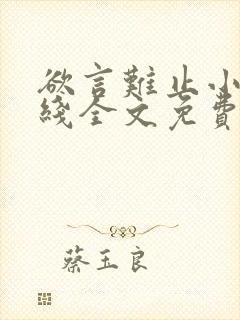 欲言難止小
綫全文免費
蔡玉良